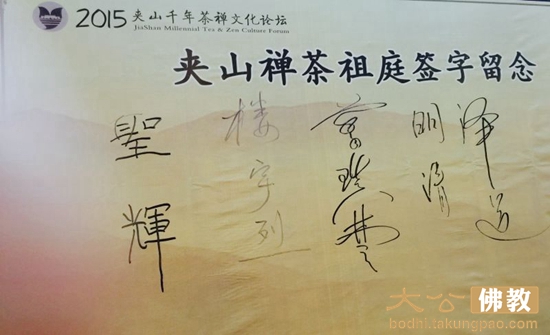 2015 夹山千年茶禅文化论坛
JiaShan Millennial Tea & Zen Culture Forum
夹山禅茶祖庭签字留念
聖輝
楼宇烈
明
泽道
大公佛教
bodhi.takungpao.com